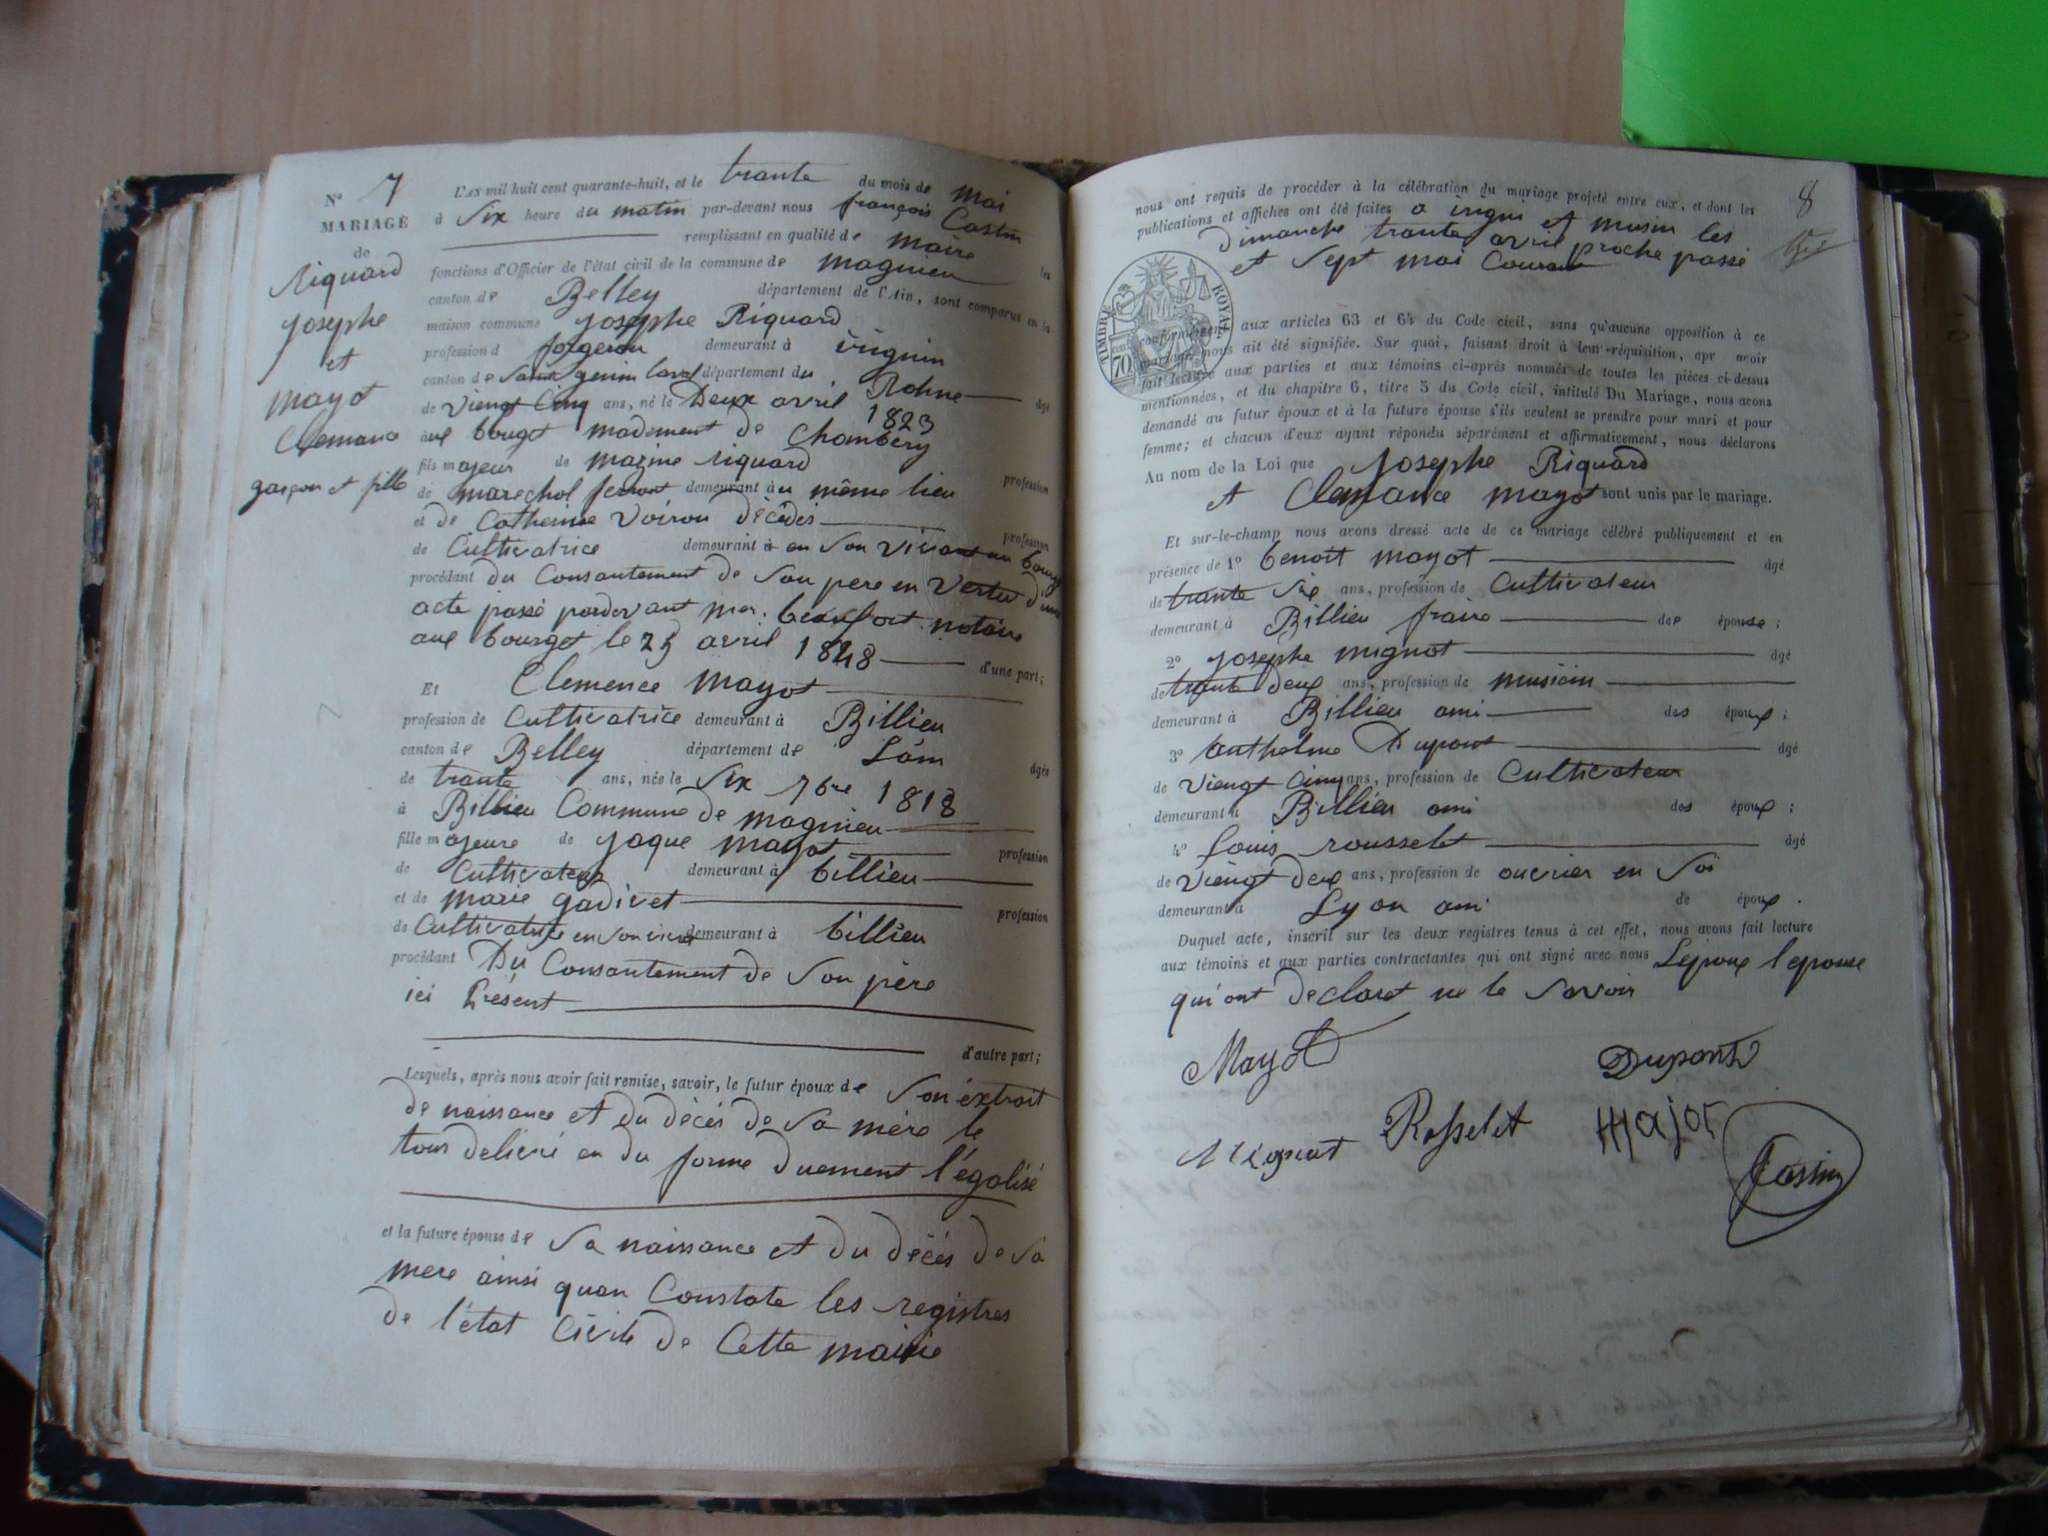 N° 7
MARIAGE
de
Riquard
Josephe
et
mayot
Clemance
garçon et fille
L'AN mil huit cent quarante-huit, et le trante du mois de mai
à Six heure du matin par-devant nous françois Castin
remplissant en qualité de maire les
fonctions d'Officier de l'état civil de la commune de magnieu
canton de Belley département de l'Ain, sont comparus en la
maison commune Josephe Riquard
profession d forgeron demeurant à irignin
canton de Saint genin laval département du Rohne âgé
de Viengt Cinq ans, né le Deux avril 1823
aux bouget de Chambery
fils majeur de maxime riquard profession
de marechol ferront demeurant au même lieu
et de Catherine Voiron décédés profession
de Cultivatrice demeurant à en Son vivant au bourget
procédant du Consantement de Son pere en Vertu d'une
acte passé pardevant mer. beaufort notaire
aux bourget le 25 avril 1848 d'une part;
Et Clemence mayot
profession de Cultivatrice demeurant à Billieu
canton de Belley département de L'ain âgée
de trante ans, née le Six 7bre 1818
à Billieu Commune de magnieu
fille majeure de Jaque mayot profession
de Cultivateur demeurant à billieu
et de marie gadivet profession
de Cultivatrice en son vivant demeurant à billieu
procédant Du Consantement de Son père
ici Présent
d'autre part;
Lesquels, après nous avoir fait remise, savoir, le futur époux de Son extrait
de naissance et du décés de Sa mère le
tous delivré en du forme duement l'égalisé
et la future épouse de Sa naissance et du décés de Sa
mere ainsi quan Constate les registres
de l'état Civile de Cette mairie
8
nous ont requis de procéder à la célébration du mariage projeté entre eux, et dont les
publications et affiches ont été faites a irigni et musin les
dimanche trante avril proche passé
et Sept mai Courant
TIMBRE ROYAL
70
conformément aux articles 63 et 64 du Code civil, sans qu'aucune opposition à ce
mariage nous ait été signifiée. Sur quoi, faisant droit à leur réquisition, apr avoir
fait lecture aux parties et aux témoins ci-après nommés de toutes les pièces ci-dessus
mentionnées, et du chapitre 6, titre 5 du Code civil, intitulé Du Mariage, nous avons
demandé au futur époux et à la future épouse s'ils veulent se prendre pour mari et pour
femme; et chacun d'eux ayant répondu séparément et affirmativement, nous déclarons
Au nom de la Loi que Josephe Riquard
et Clemance mayot sont unis par le mariage.
Et sur-le-champ nous avons dressé acte de ce mariage célébré publiquement et en
présence de 1° benoit mayot âgé
de trante Six ans, profession de Cultivateur
demeurant à Billieu frare des épouse;
2° Josephe mignot âgé
de trante deux ans, profession de musicin
demeurant à Billieu ami des époux;
3° anthelme Dupont âgé
de Viengt Cinq ans, profession de Cultivateur
demeurant à Billieu ami des époux;
4° Louis rousselet âgé
de Viengt deux ans, profession de ouvrier en Soi
demeurant à Lyon ami de époux.
Duquel acte, inscrit sur les deux registres tenus à cet effet, nous avons fait lecture
aux témoins et aux parties contractantes qui ont signé avec nous Lepoux l'epouse
qui ont declaret ne le Savoir
Mayot
Dupont
Rosselet
Major
Castin